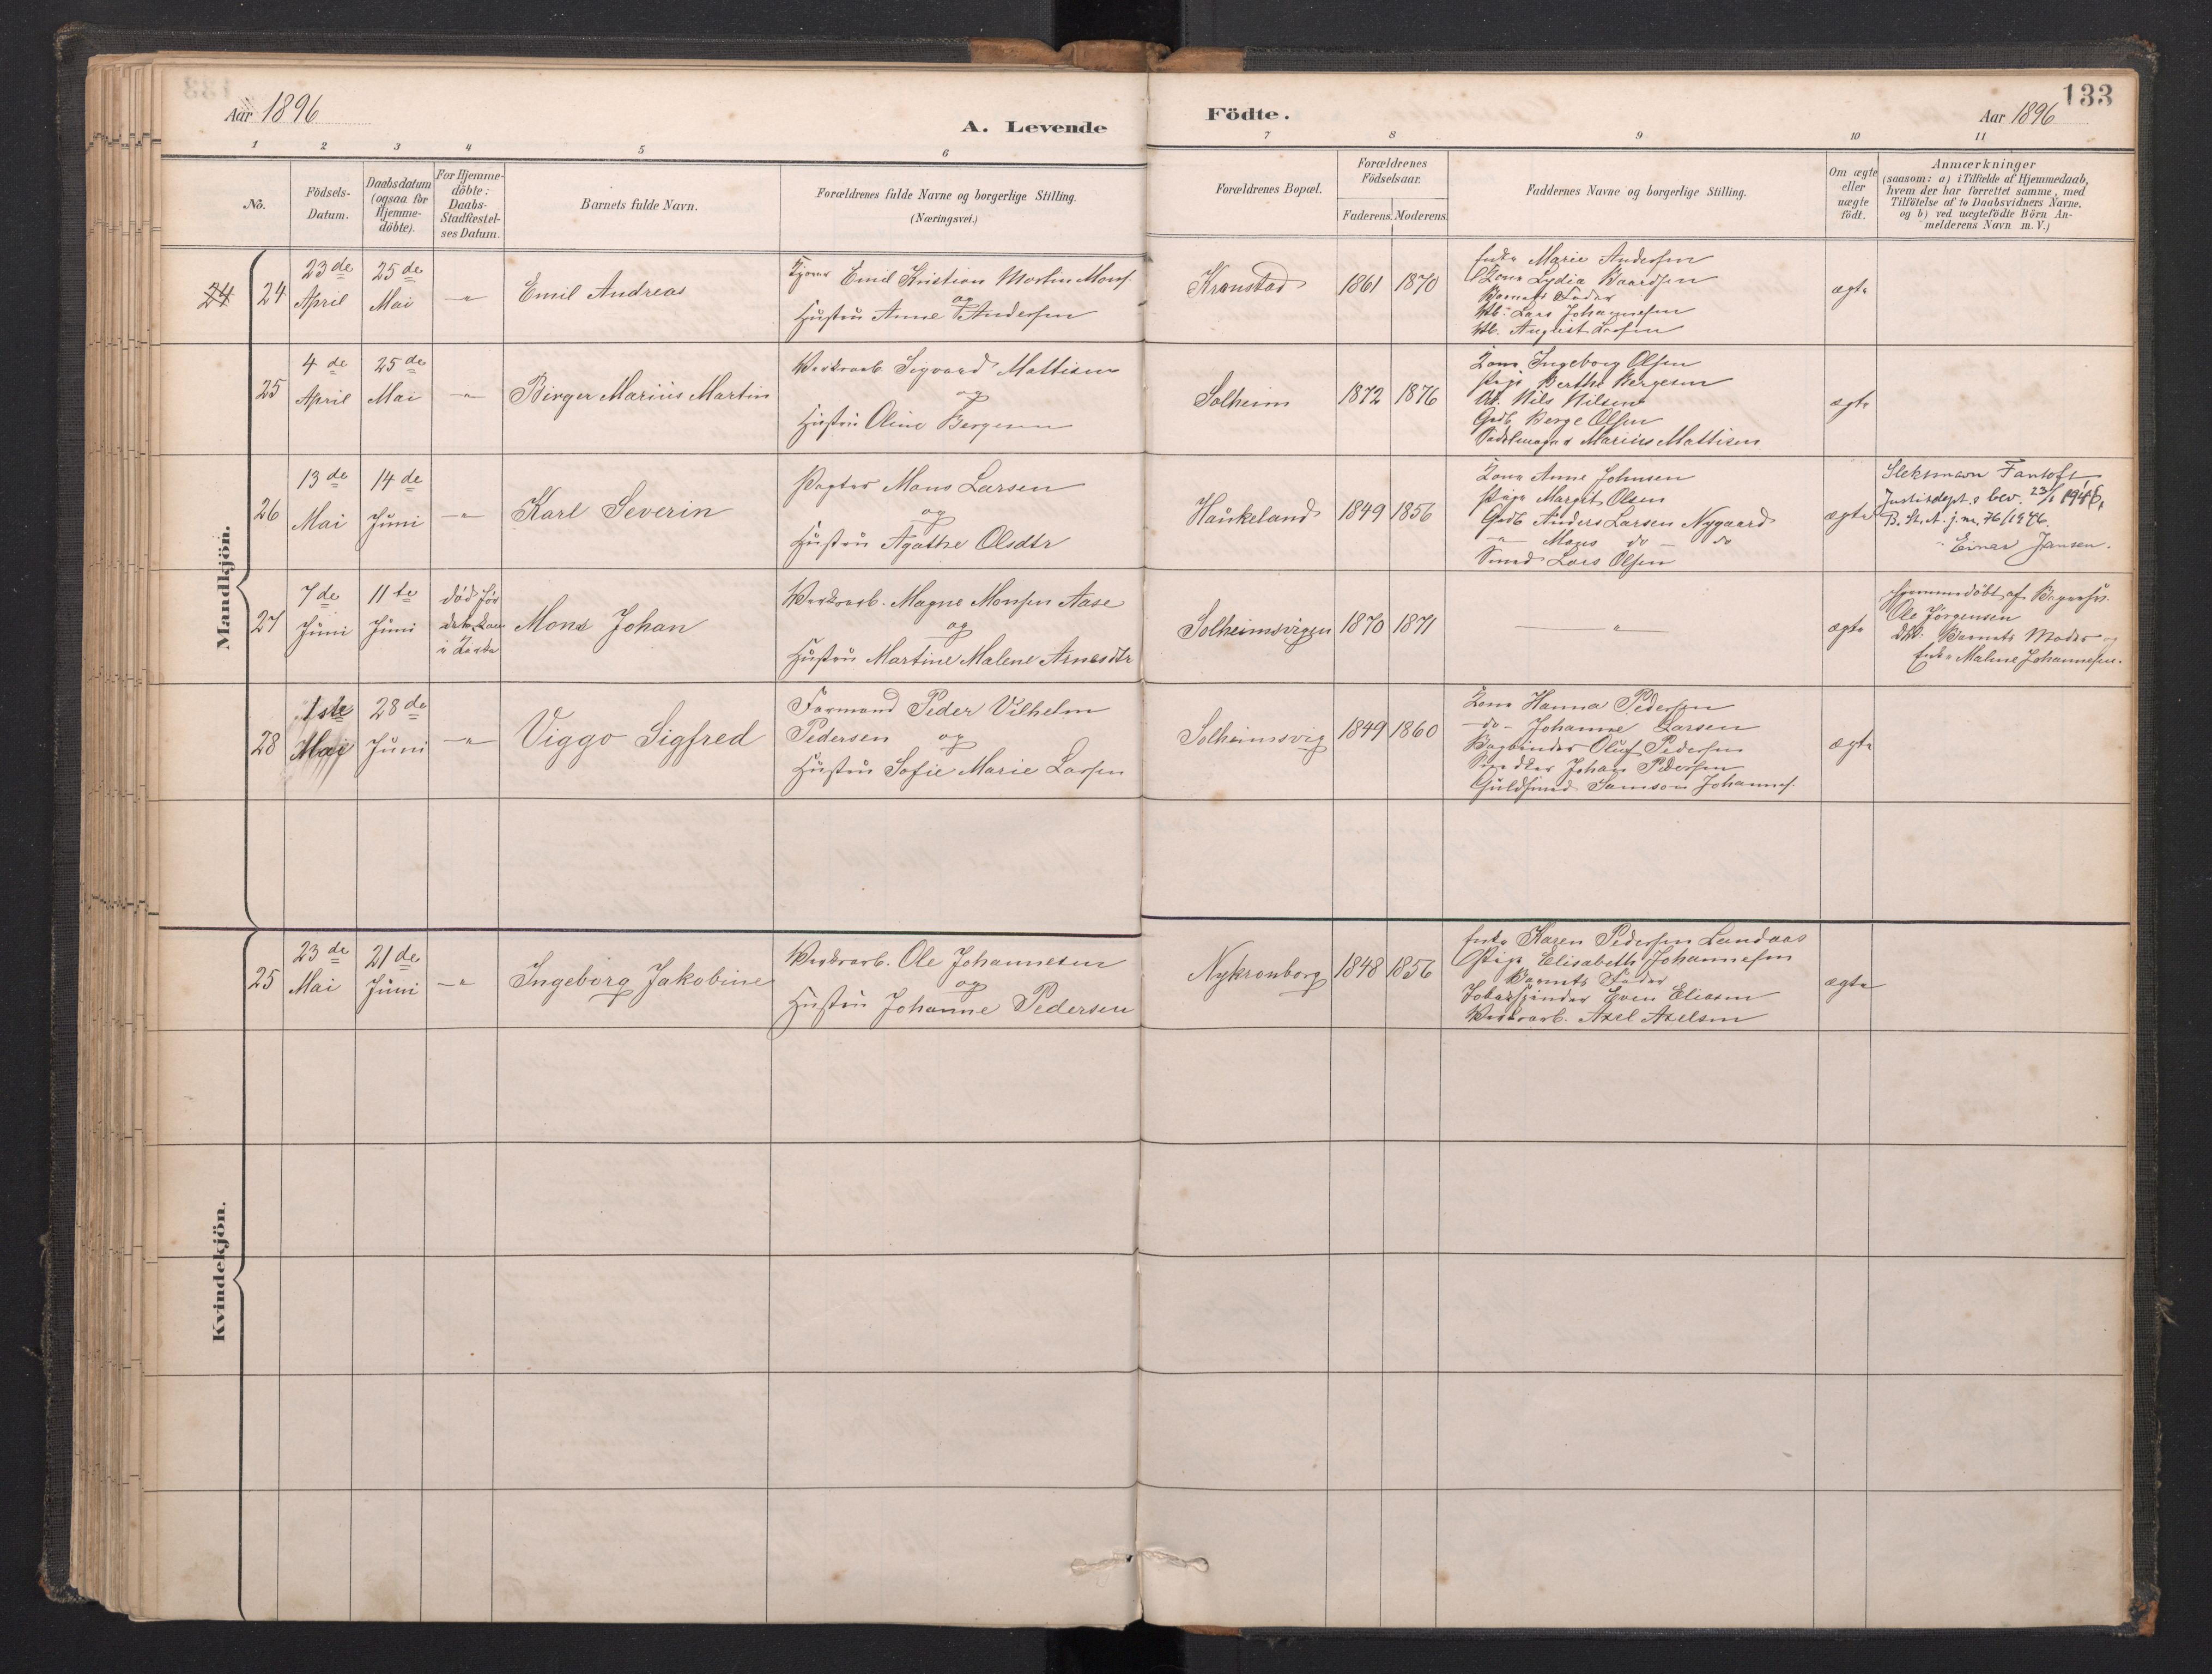 133
Aar 1896
A. Levende
Födte.
Aar 1896
1 2 3 4 5 6 7 8 9 10 11
No.
Födsels-
Datum.
Daabsdatum
(ogsaa for
Hjemme-
döbte).
For Hjemme-
döbte:
Daabs-
Stadfæstel-
ses Datum.
Barnets fulde Navn.
Forældrenes fulde Navne og borgerlige Stilling.
(Næringsvei.)
Forældrenes Bopæl.
Forældrenes
Födselsaar.
Faderens. Moderens.
Faddernes Navne og borgerlige Stilling.
Om ægte
eller
uægte
födt.
Anmærkninger
(saasom: a) i Tilfælde af Hjemmedaab,
hvem der har forrettet samme, med
Tilföielse af to Daabsvidners Navne,
og b) ved uægtefödte Börn An-
melderens Navn m. V.)
Mandkjön.
24 24
23de
April
25de
Mai
-"-
Emil Andreas
Emil Kristian Martin Mons.
og
Hustru Anne Andersen
Kronstad
1861 1870
Enke Marie Andersen
Kone Lydia Baardsen
Barnets Fader
Lars Johannesen
August
ægte
25
4de
April
25de
Mai
-"-
Birger Marius Martin
Værksarb. Sigvard Mattisen
og
Hustru Oline Bergesen
Solheim
1872 1876
Kone Ingeborg Olsen
Pige Berthe Bergesen
Nils Nilsen
Gdb. Berge Olsen
Sadelmager Marius Mattisen
ægte
26
13de
Mai
14de
Juni
-"-
Karl Severin
Pagter Mons Larsen
og
Hustru Agathe Olsdtr
Haukeland
1849 1856
Kone Anne Johnsen
Pige Margit Olsen
Gdb Anders Larsen Nygaard
-"- Mons do - do
Smed Lars Olsen
ægte
Slektsnavn Fantoft
Justisdept.s bev. 23/1 1946,
B. St. A. j.nr. 76/1946.
Einar Jansen.
27
7de
Juni
11te
Juni
død før
det kom
i Kirke
Mons Johan
Værksarb. Magne Monsen Aase
og
Hustru Martine Malene Arnesdtr
Solheimsvigen
1870 1871
-"-
ægte
Hjemmedöbt af
Ole Jörgensen
Barnets Moder og
Enke Maline Johannesen.
28
1ste
Mai
28de
Juni
-"-
Viggo Sigfred
Formand Peder Vilhelm
Pedersen og
Hustru Sofie Marie Larsen
Solheimsvig
1849 1860
Kone Hanna Pedersen
-do- Johanne Larsen
Bogbinder Oluf Pedersen
Snedker Johan Pedersen
Guldsmed Samson Johannes.
ægte
Kvindekjön.
25
23de
Mai
21de
Juni
-"-
Ingeborg Jakobine
Værksarb. Ole Johannesen
og
Hustru Johanne Pedersen
Nykronborg
1848 1856
Enke Karen Pedersen Landaas
Pige Elisabeth Johannesen
Barnets Fader
Tobaksspinder Even Eliasen
Værksarb. Axel Axelsen
ægte